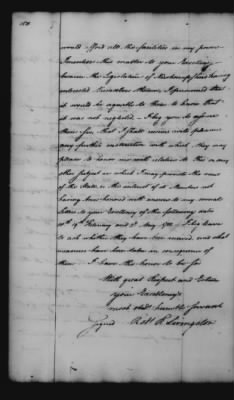 would afford all the facilities in my power
I mention this matter to your Excellency
because the Legislature of New hampshire having
interested themselves therein, I presumed that
it would be agreeable to them to know that
it was not neglected. I beg you to assure
them Sir, that I shall receive with pleasure
any further instruction with which they may
please to honor me with relation to this or any
other subject in which I may promote the views
of the State, or the interest of its Members not
having been honored with answers to my several
letters to your Excellency of the following dates
19th February and 2d May 1782 I beg leave
to ask whether they have been received and what
measures have been taken in consequence of
them. I have the honor to be Sir
With great Respect and Esteem
your Excellency's
most obed. humble Servant
Signed Robt R. Livingston